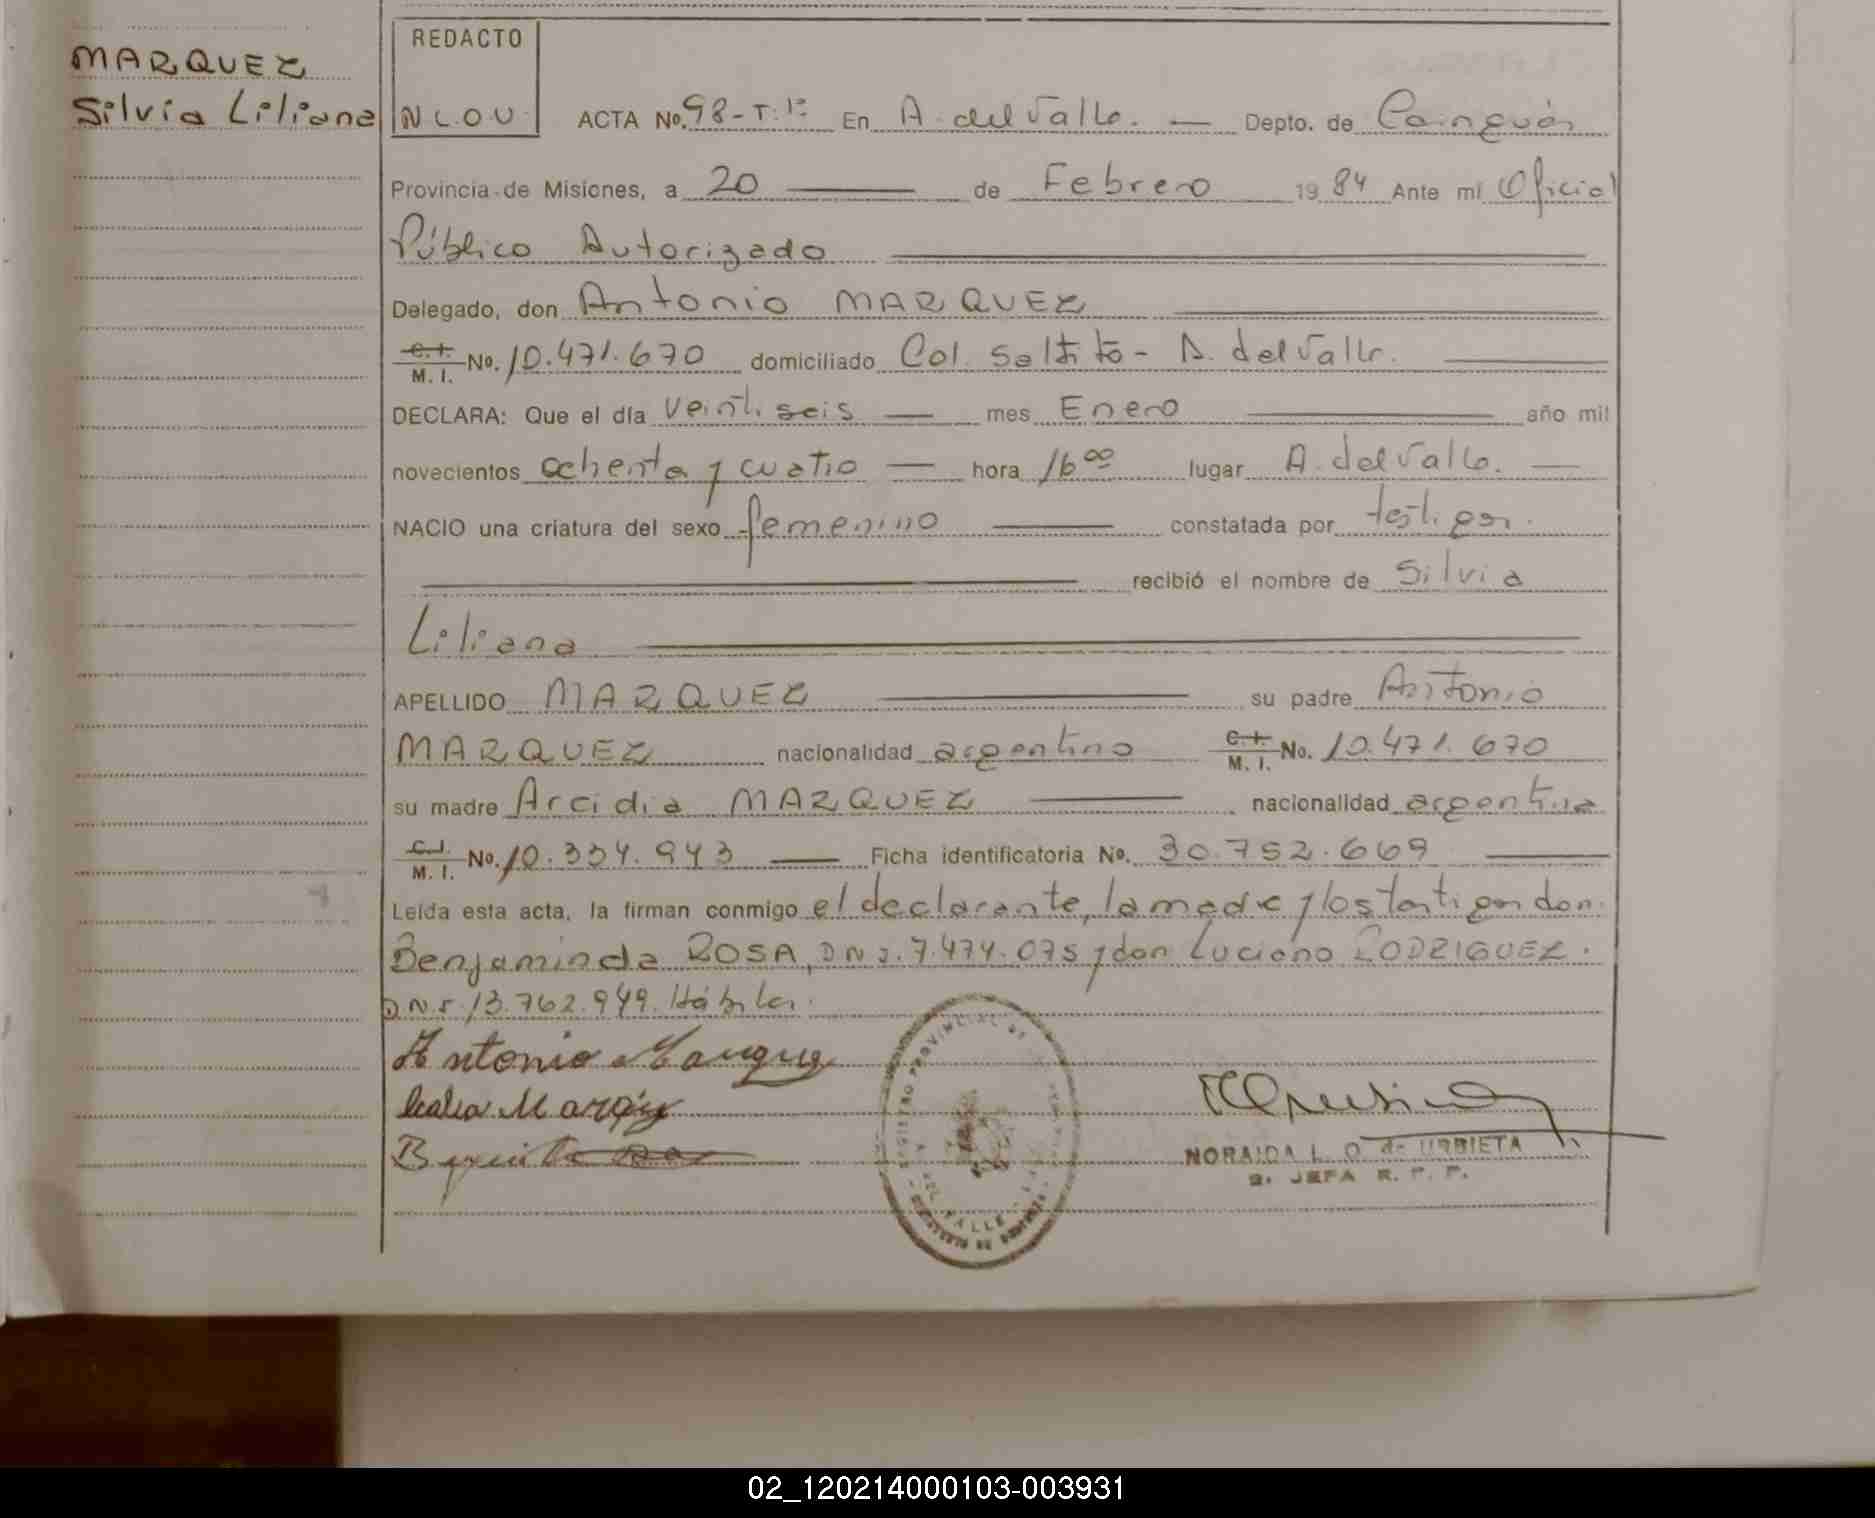 MARQUEZ
Silvia Liliana
REDACTO
N L. O U.
ACTA No. 98-T.1º En A. del Valle. — Depto. de Cainguás
Provincia de Misiones, a 20 de Febrero 1984 Ante mi Oficial
Público Autorizado
Delegado, don Antonio MARQUEZ
C. I. M. I. No. 10.471.670 domiciliado Col. Saltito - A. del Valle.
DECLARA: Que el día veintiseis — mes Enero año mil
novecientos ochenta y cuatro — hora 16 00 lugar A. del Valle. —
NACIO una criatura del sexo femenino constatada por testigos.
recibió el nombre de Silvia
Liliana
APELLIDO MARQUEZ su padre Antonio
MARQUEZ nacionalidad argentino C. I. M. I. No. 10.471.670
su madre Arcidia MARQUEZ nacionalidad argentina
C. I. M. I. No. 10.334.943 — Ficha identificatoria No. 30.752.669
Leída esta acta, la firman conmigo el declarante, la madre y los testigos don.
Benjamin da ROSA, DNI. 7.474.075 y don Luciano RODRIGUEZ.
DNI. 13.762.949. Hábiles.
Antonio Marquez
Marquez
REGISTRO PROVINCIAL DE
DEL VALLE
NORAIDA L. O. de URBIETA
JEFA R. P. P.
02_120214000103-003931